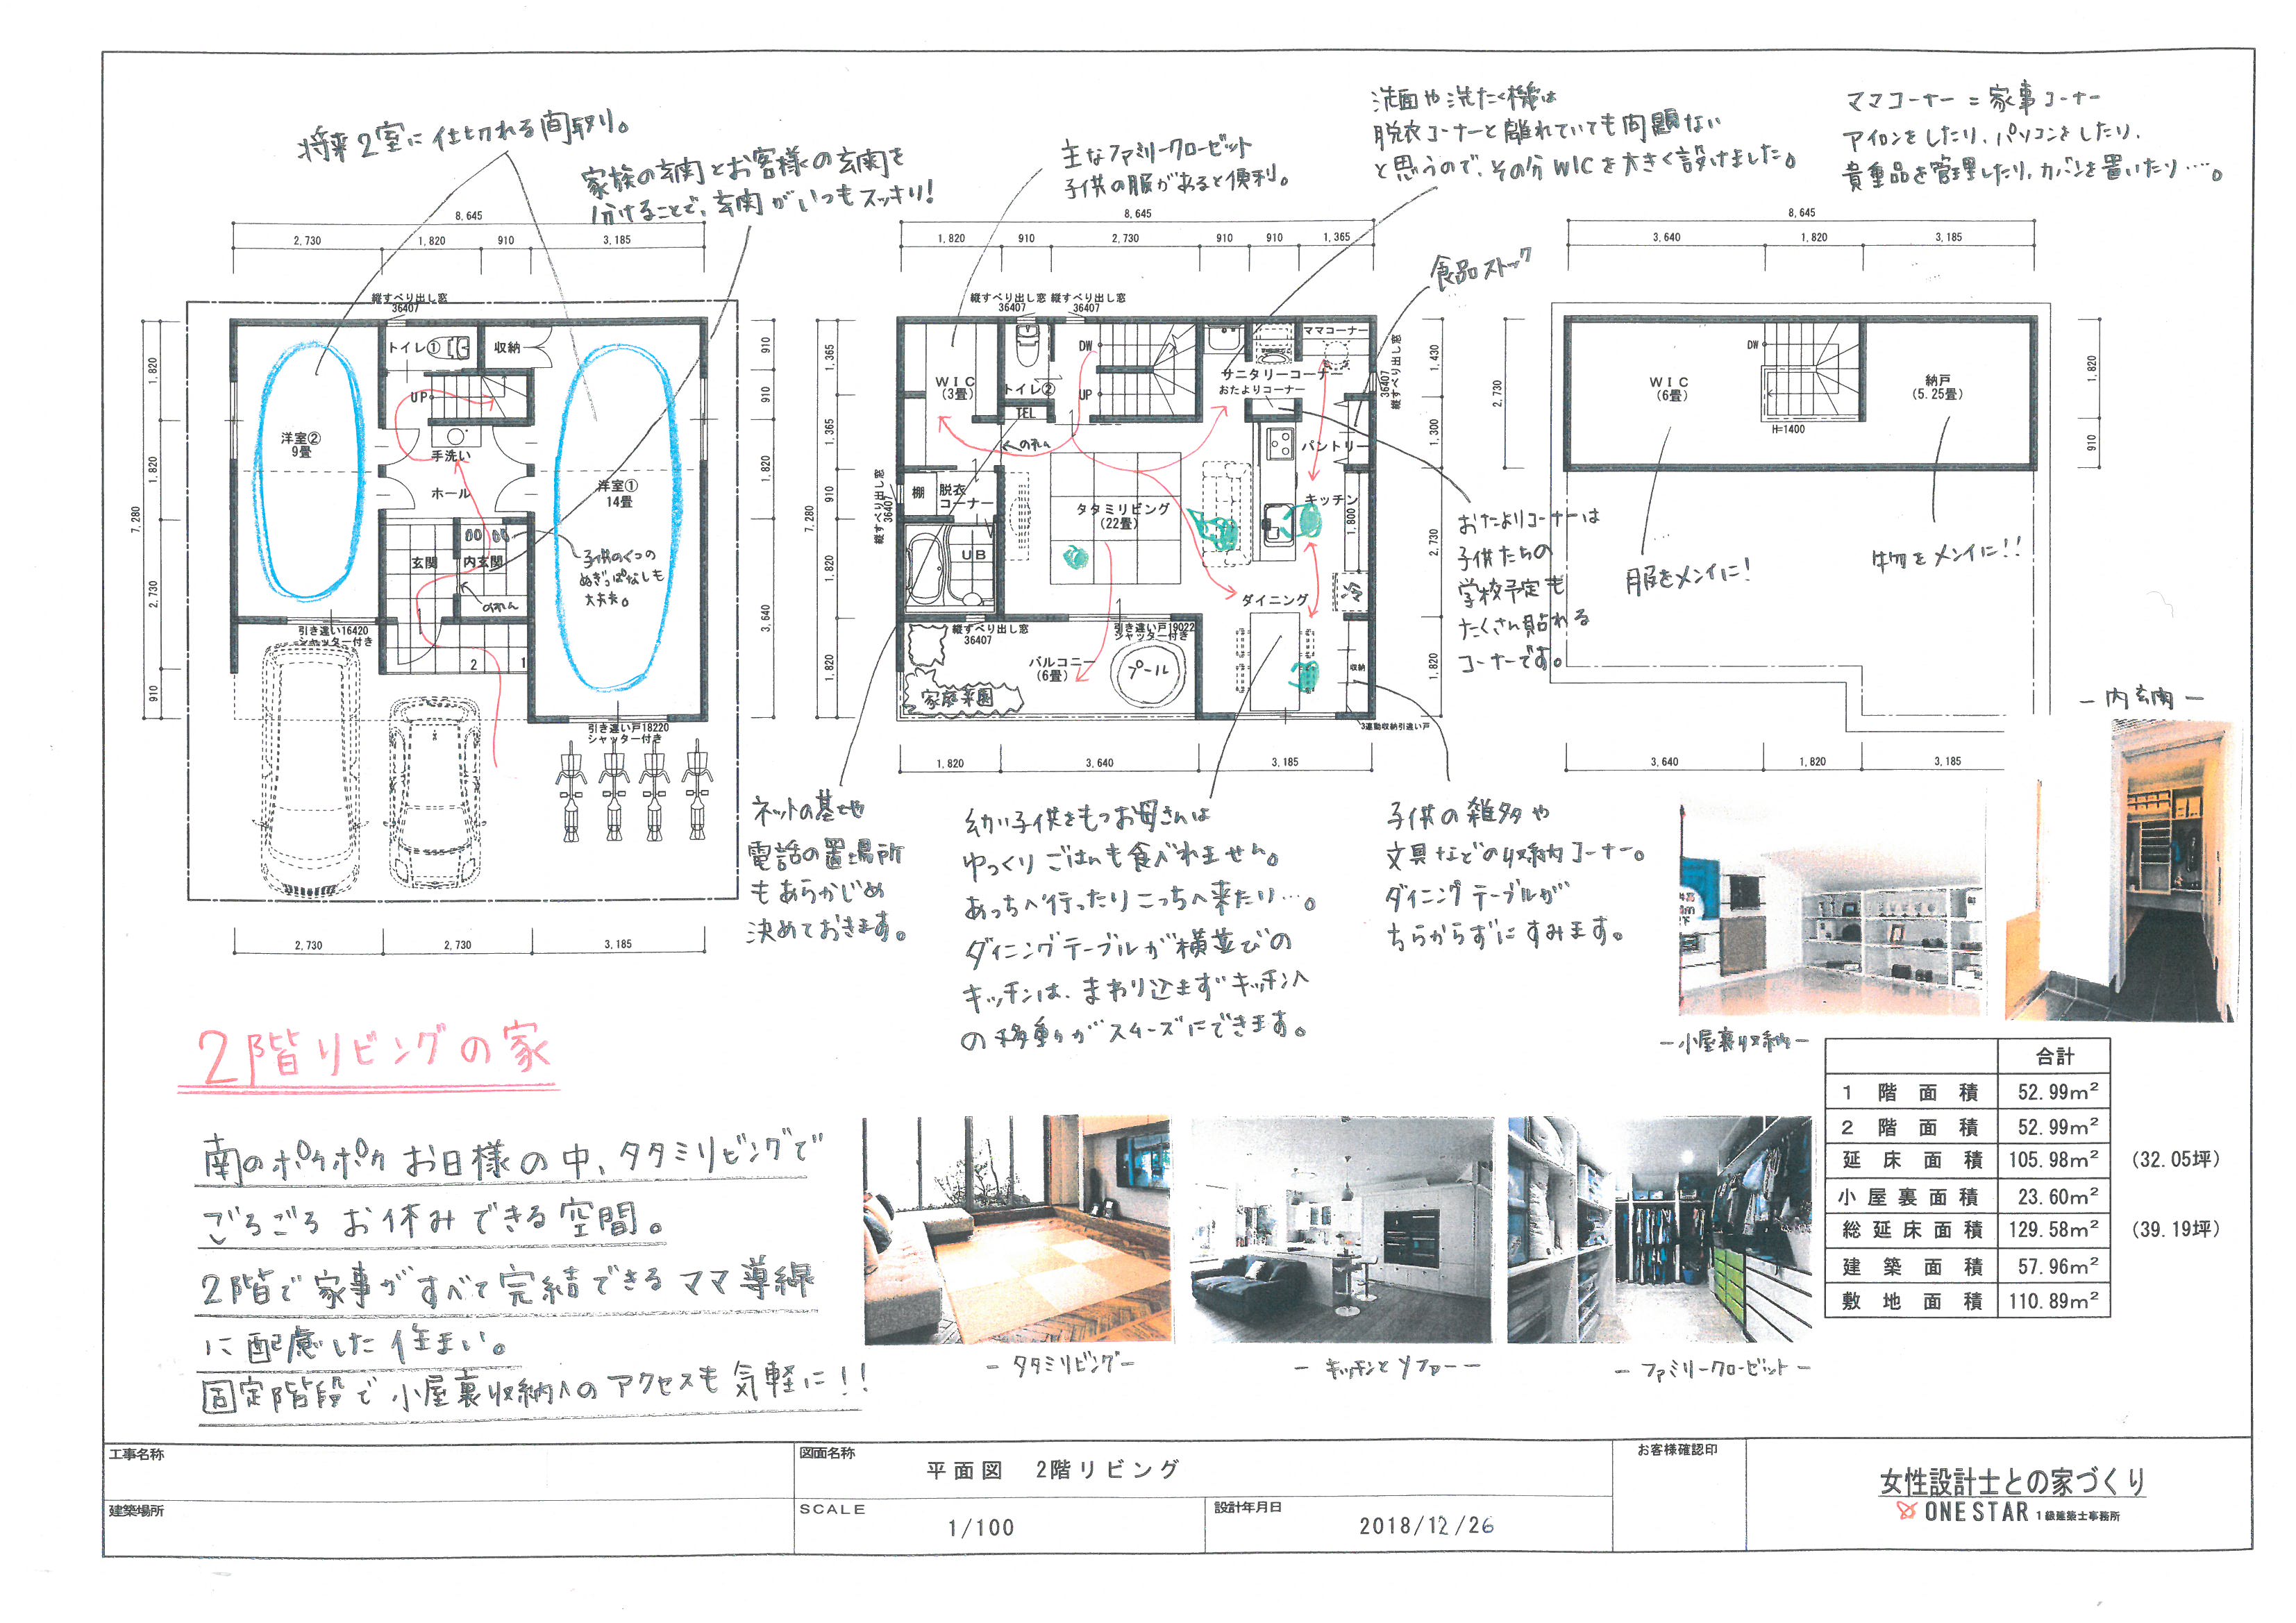 将来2室に仕切れる間取り。
家族の玄関とお客様の玄関を
分けることで、玄関がいつもスッキリ!
主なファミリークローゼット
子供の服があると便利。
洗面や洗たく機は
脱衣コーナーと離れていても問題ない
と思うので、その分WICを大きく設けました。
ママコーナー=家事コーナー
アイロンをしたり、パソコンをしたり、
貴重品を管理したり、カバンを置いたり…。
食品ストック
8,645
2,730 1,820 910 3,185
縦すべり出し窓
36407
トイレ① 収納
UP
洋室②
9畳
手洗い
ホール
洋室①
14畳
玄関 内玄関
のれん
子供のくつの
ぬぎっぱなしも
大丈夫。
引き違い16420
シャッター付き
2 1
引き違い戸18220
シャッター付き
7,280
1,820 1,820 2,730 910
910 910 1,365 1,820 3,640
2,730 2,730 3,185
8,645
1,820 910 2,730 910 910 1,365
縦すべり出し窓 縦すべり出し窓
36407 36407
WIC
(3畳)
トイレ②
TEL
DW
UP
ママコーナー
サニタリーコーナー
おたよりコーナー
縦すべり出し窓
36407
のれん
パントリー
棚 脱衣
コーナー
UB
タタミリビング
(22畳)
キッチン
1,800
ダイニング
縦すべり出し窓
36407
縦すべり出し窓
36407
引き違い戸19022
シャッター付き
バルコニー
(6畳)
プール
家庭菜園
収納
3連動収納引違い戸
7,280
1,365 1,365 910 1,820 1,820
1,430 1,300 2,730 1,820
1,820 3,640 3,185
8,645
3,640 1,820 3,185
WIC
(6畳)
DW
H=1400
納戸
(5.25畳)
2,730
1,820 910
3,640 1,820 3,185
服をメインに!
物をメインに!!
おたよりコーナーは
子供たちの
学校予定も
たくさん貼れる
コーナーです。
ネットの基地や
電話の置場所
もあらかじめ
決めておきます。
幼い子供をもつお母さんは
ゆっくりごはんも食べれません。
あっちへ行ったりこっちへ来たり…。
ダイニングテーブルが横並びの
キッチンは、まわり込まずキッチンへ
の移動がスムーズにできます。
子供の雑多や
文具などの収納コーナー。
ダイニングテーブルが
ちらからずにすみます。
-内玄関-
-小屋裏収納-
2階リビングの家
南のポカポカお日様の中、タタミリビングで
ごろごろお休みできる空間。
2階で家事がすべて完結できるママ導線
に配慮した住まい。
固定階段で小屋裏収納へのアクセスも気軽に!!
-タタミリビング-
-キッチンとソファー-
-ファミリークローゼット-
合計
1階面積 52.99m²
2階面積 52.99m²
延床面積 105.98m² (32.05坪)
小屋裏面積 23.60m²
総延床面積 129.58m² (39.19坪)
建築面積 57.96m²
敷地面積 110.89m²
工事名称
建築場所
図面名称
平面図 2階リビング
SCALE
1/100
設計年月日
2018/12/26
お客様確認印
女性設計士との家づくり
ONE STAR 1級建築士事務所